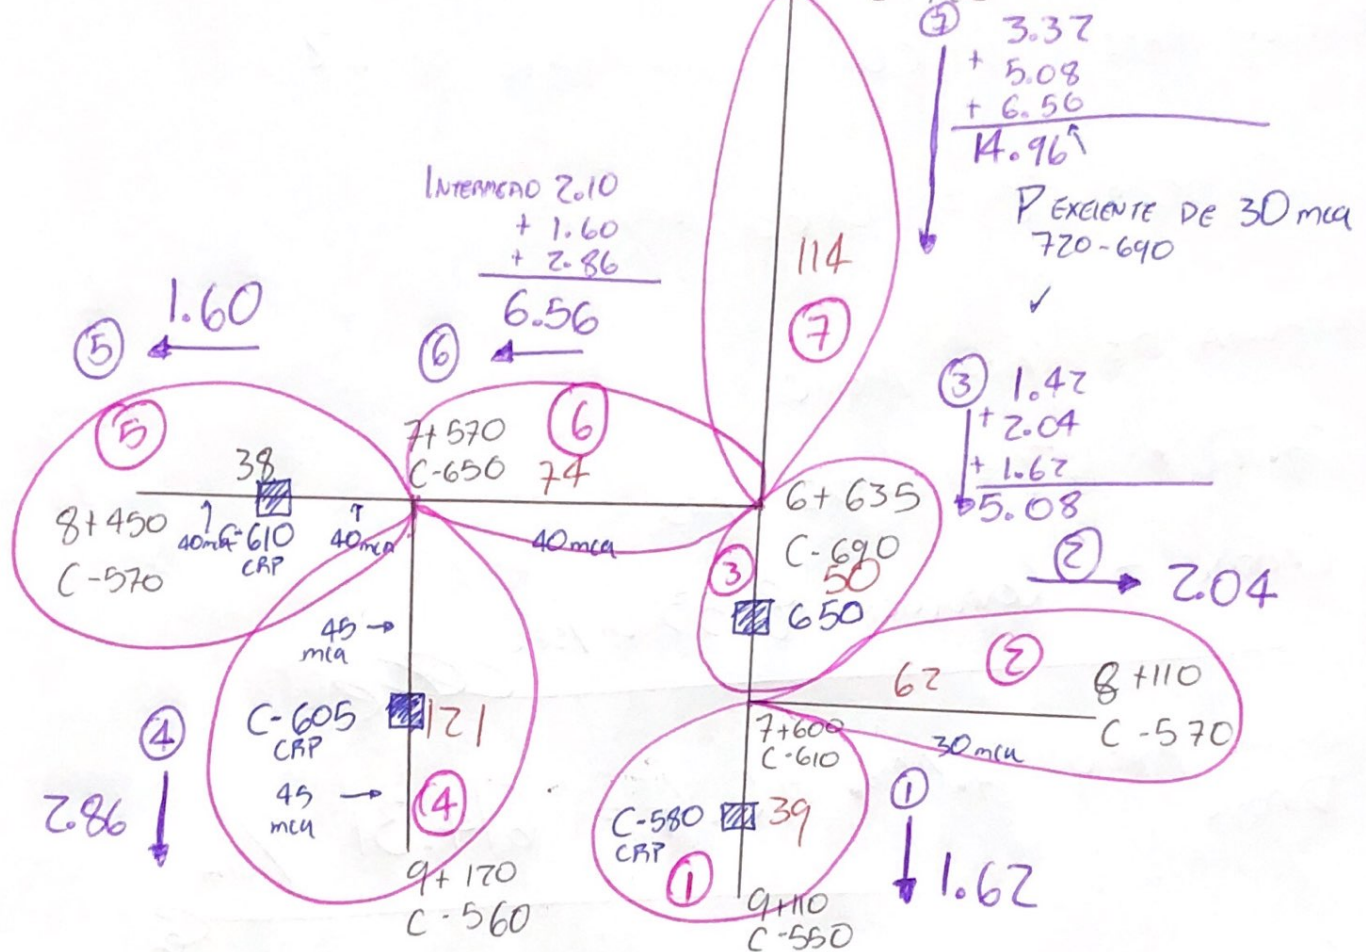 7 3.37
+ 5.08
+ 6.56
14.96
P EXELENTE DE 30 mca
720-690
✓
INTERMEDIO 2.10
+ 1.60
+ 2.86
6.56
114
7
1.60
5
6
3 1.42
+ 2.04
+ 1.62
5.08
5
38
8+450
C-570
40mca
C-610
CRP
40mca
7+570
C-650
6
74
40mca
6+635
C-690
50
3
650
2
2.04
62
2
8+110
C-570
30mca
45
mca
C-605
CRP
121
45
mca
4
4
2.86
9+170
C-560
7+600
C-610
C-580
CRP
39
1
9+110
C-550
1
1.62